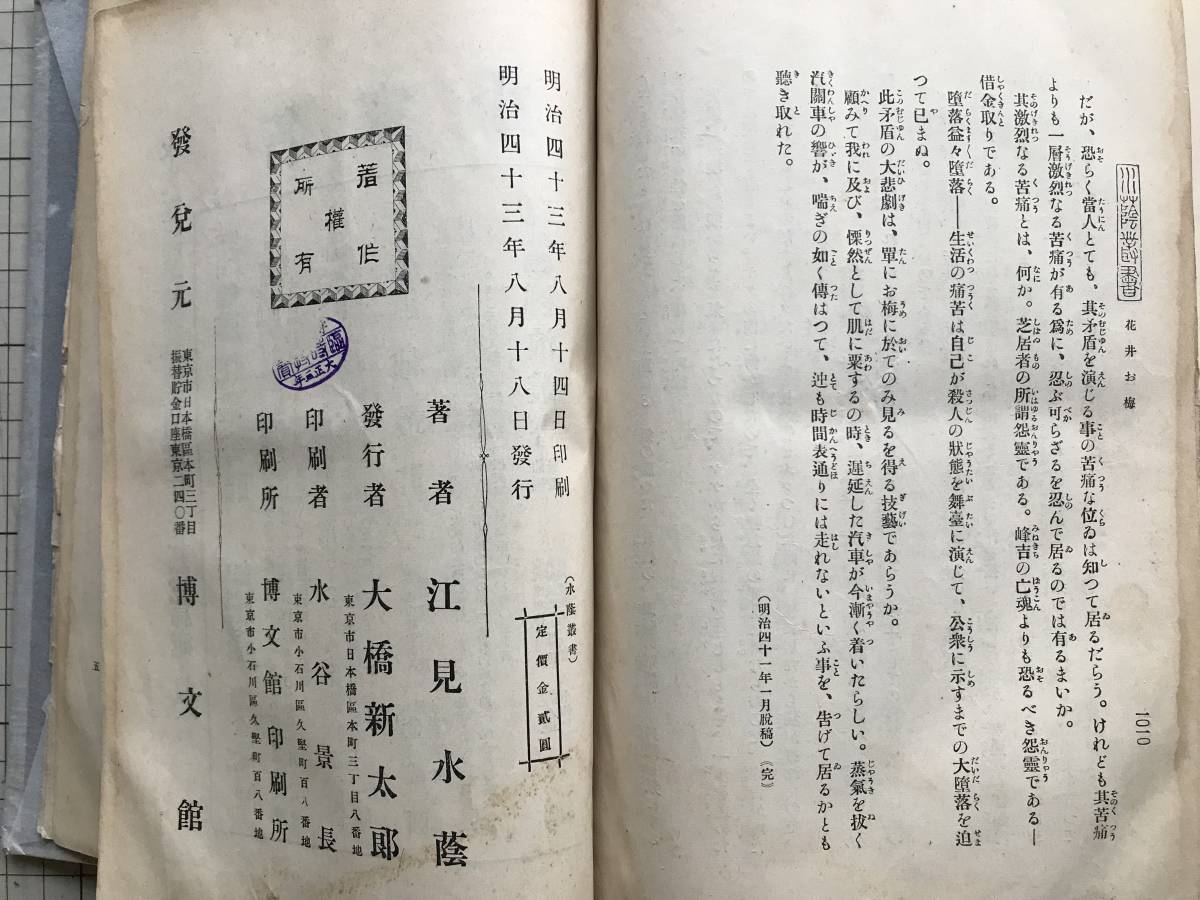 水蔭叢書
花井お梅
1010
だが、恐らく當人とても、其矛盾を演じる事の苦痛な位ゐは知つて居るだらう。けれども其苦痛
よりも一層激烈なる苦痛が有る爲に、忍ぶ可らざるを忍んで居るのでは有るまいか。
其激烈なる苦痛とは、何か。芝居者の所謂怨靈である。峰吉の亡魂よりも恐るべき怨靈である—
借金取りである。
墮落益々墮落——生活の痛苦は自己が殺人の狀態を舞臺に演じて、公衆に示すまでの大墮落を迫
つて已まぬ。
此矛盾の大悲劇は、單にお梅に於てのみ見るを得る技藝であらうか。
顧みて我に及び、慄然として肌に粟するの時、遲延した汽車が今漸く着いたらしい。蒸氣を拔く
汽關車の響が、喘ぎの如く傳はつて、迚も時間表通りには走れないといふ事を、告げて居るかとも
聽き取れた。
(明治四十一年一月脫稿)(完)
(水蔭叢書)
定價金貳圓
明治四十三年八月十四日印刷
明治四十三年八月十八日發行
著作
權
所有
臨時特賣
大正三年
著者 江見水蔭
發行者 大橋新太郎
東京市日本橋區本町三丁目八番地
印刷者 水谷景長
東京市小石川區久堅町百八番地
印刷所 博文館印刷所
東京市小石川區久堅町百八番地
發兌元 博文館
東京市日本橋區本町三丁目
振替貯金口座東京二四〇番
五